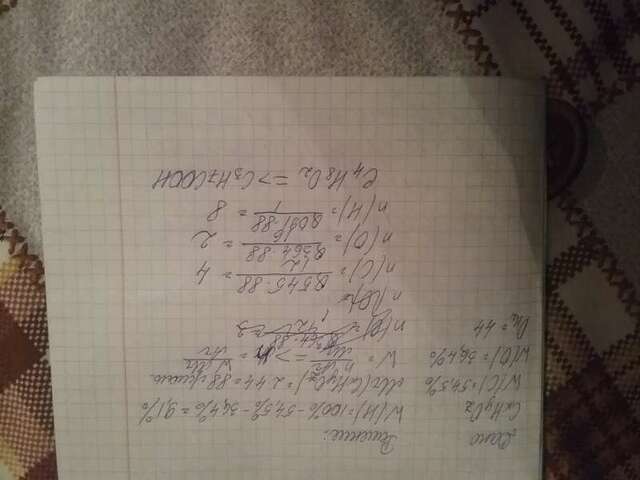 Дано
CxHyOz
W(C)=54,5%
W(O)=36,4%
DH₂=44
Решение:
W(H)=100%-54,5%-36,4%=9,1%
Mr(CxHyOz)=2·44=88 г/моль
W = n·Ar/Mr => n = W·Mr/Ar
n(C)= 0,545·88/12 = 4
n(O)= 0,364·88/16 = 2
n(H)= 0,091·88/1 = 8
C₄H₈O₂ => C₃H₇COOH